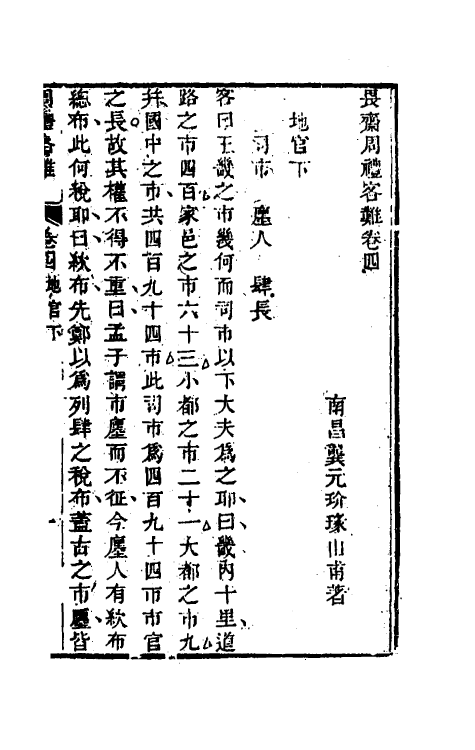 畏齋周禮客難卷四
南昌龔元玠瑑山甫著
地官下
司市　廛人　肆長
客曰王畿之市幾何而司市以下大夫爲之耶曰畿內十里道
路之市四百家邑之市六十三小都之市二十一大都之市九
幷國中之市共四百九十四市此司市爲四百九十四市市官
之長故其權不得不重曰孟子謂市廛而不征今廛人有絘布
總布此何稅耶曰絘布先鄭以爲列肆之稅布蓋古之市廛皆
周禮客難
卷四地官下
一